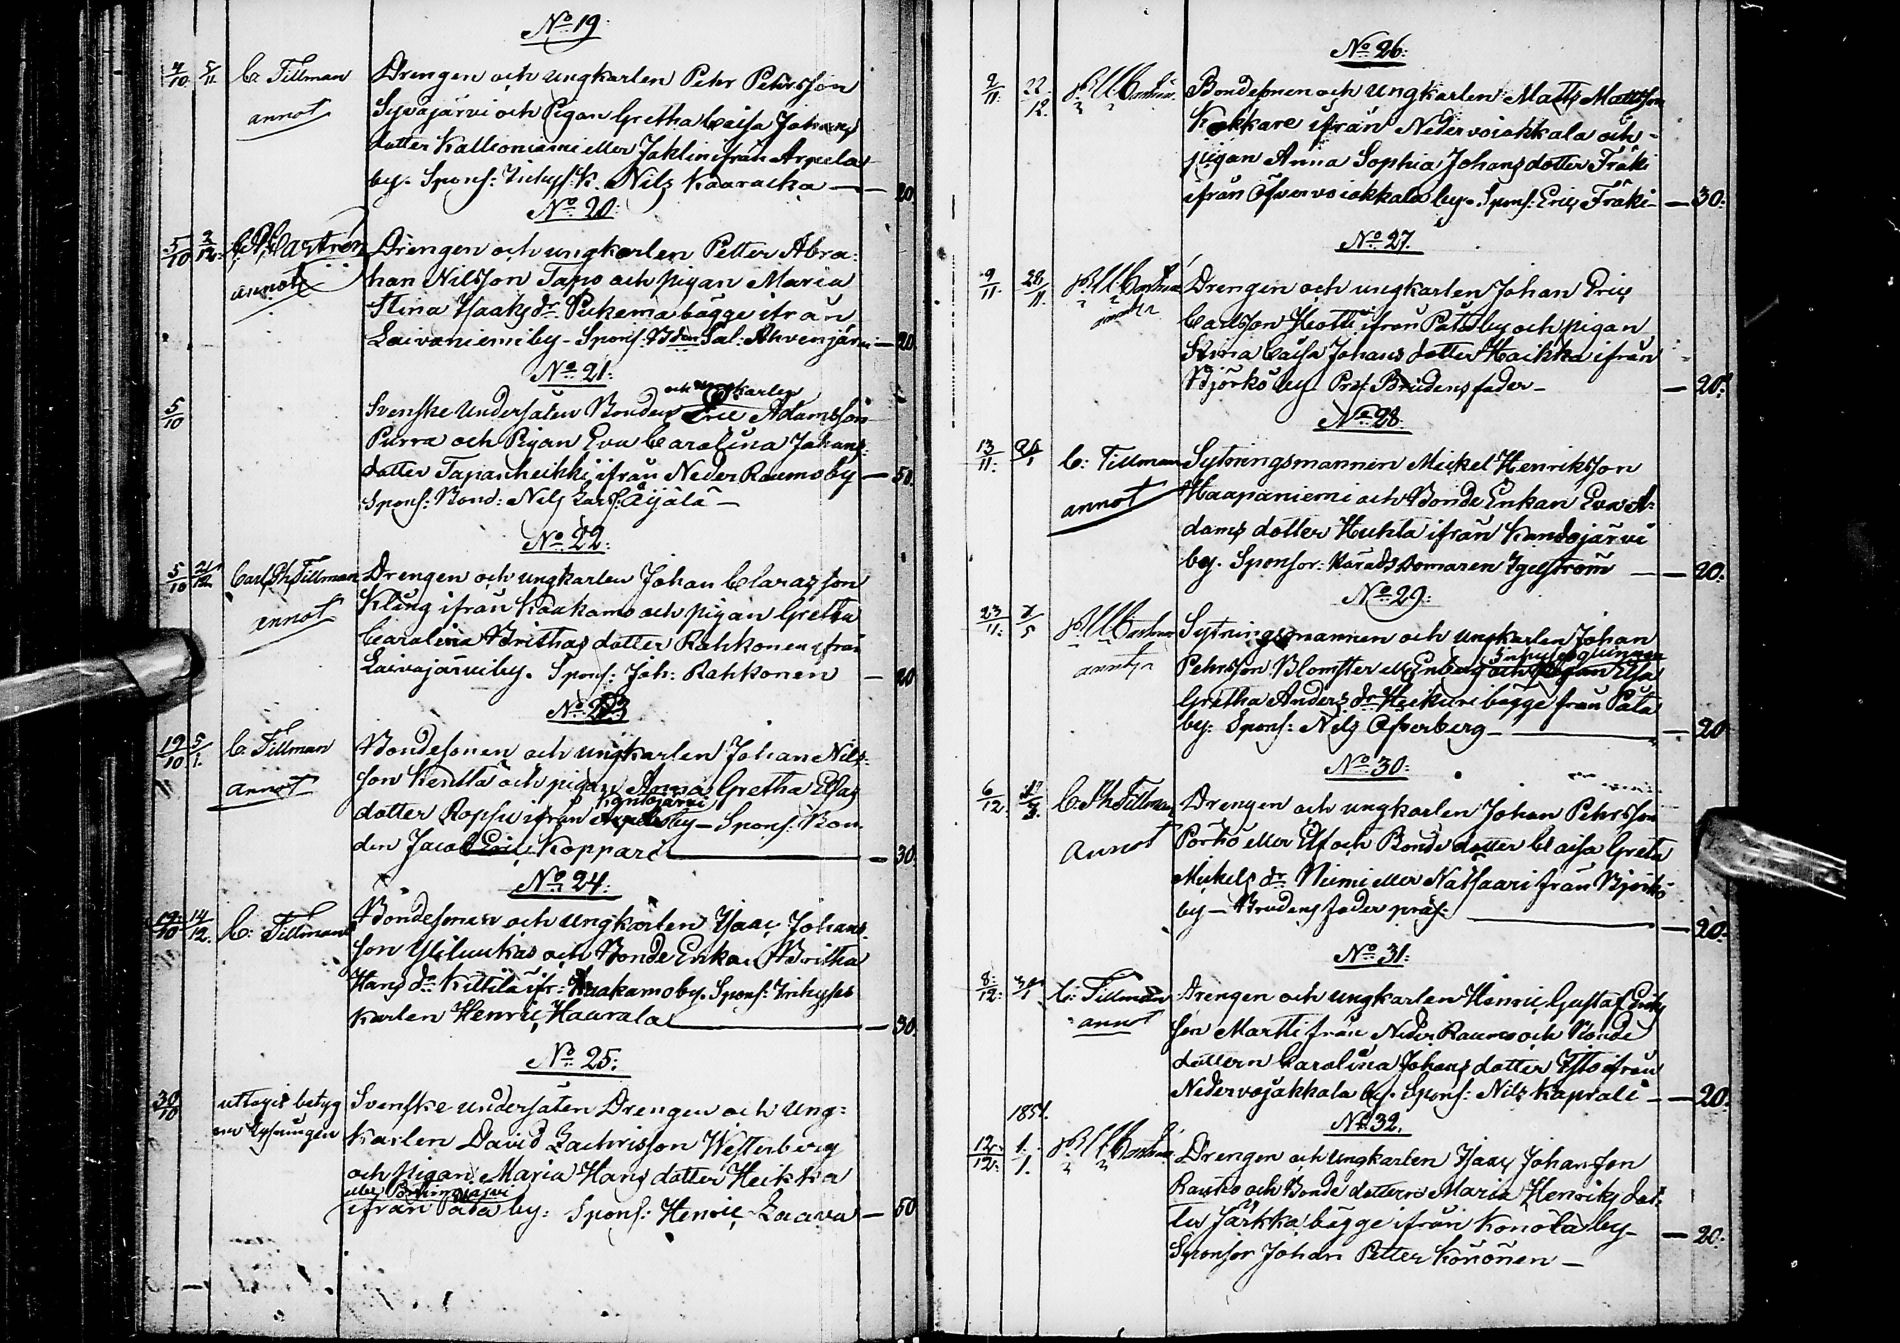 No 19.
4/10 5/11 C. Tillman Drengen och ungkarlen Pehr Pehrsson
annot Syväjärvi och Pigan Gretha Caisa Johans
dotter Kallioniemi eller Jaklin ifrån Arpela
by. Spons: K. Nils Kaaracka — 20
No 20:
5/10 2/12 Castrén Drengen och ungkarlen Petter Abra=
annot ham Nilsson Tapo och pigan Maria
Stina Isaaks dr Pukema bägge ifrån
Laivaniemi by – Spons: Sal: Ahvenjärvi — 20
No 21:
och ungkarlen
5/10 Svenske Undersåten Bonden Eric Adamsson
Purra och Pigan Eva Carolina Johans
dotter Tapanheikki ifrån Neder Raumo by — 50.
Spons: Bond: Nils Lars: Äijälä —
No 22:
5/10 Carl Ph Tillman Drengen och ungkarlen Johan Claras son
annot Kling ifrån Kaakamo och pigan Gretha
Carolina Brithas dotter Rahkonen ifrån
Laivajärvi by. Spons: Joh: Rahkonen — 20
No 23
19/10 5/1. C. Tillman Bondesonen och ungkarlen Johan Nils-
annot son Kenttä och pigan Anna Gretha Elias
Kantojärvi
dotter Ropsu ifrån by – Spons: Bon
den Jacob Eric Koppari — 30.
No 24:
19/10 14/12. C: Tillman Bondesonen och Ungkarlen Isaac Johans
son Yliluukas och Bonde Enkan Britha
Hans dr Kittilä ifr: Kaakamo by. Spons:
karlen Henric Haurala — 30.
No 25:
30/10 uttagit betyg Svenske undersåten Drengen och Ung=
om lysningen karlen David Zachrisson Westerberg
och Pigan Maria Hans dotter Heikka
eller
ifrån Pata by: Spons: Henric Laava — 50
No 26:
9/11. 22/12. Bondesonen och Ungkarlen Matts Mattsson
Kokkare ifrån Nedervojakkala och
pigan Anna Sophia Johans dotter Fräki
ifrån Öfvervojakkala by. Spons: Eric Fräki — 30:
No 27.
9/11. 28/11. Drengen och ungkarlen Johan Eric
Carlsson Hiotti ifrån Pata by och pigan
Stina Caisa Johans dotter Haikka ifrån
Björkö by Pres: Brudens fader — 20:
No 28.
13/11: C: Tillman Sytningsmannen Mickel Henriksson
annot Haapaniemi och Bonde Enkan Eva A-
dams dotter Huhta ifrån Kandojärvi
by. Sponsor: Häradsdomaren Igelström — 20.
No 29:
23/11: 7/5 Sytningsmannen och ungkarlen Johan
Pehrsson Blomster ell: Enberg och Elsa
Gretha Anders dr Heikuri bägge från Pata
by: Spons: Nils Ofverberg — 20
No 30:
6/12: C. Ph Tillman Drengen och ungkarlen Johan Pehrsson
annot Pörhö eller Elf och Bonde dotter Caisa Greta
Mickels dr Niemi eller Natsaari från Björkö
by – Brudens fader präs: — 20:
No 31:
8/12: C: Tillman Drengen och ungkarlen Henric Gustaf Eriks
annot son Martti från Neder Raumo och Bonde
dottern Carolina Johans dotter Ylto ifrån
Nedervojakkala by. Spons: Nils Kaprali — 20.
1851. No 32.
12/12. 1/1. Drengen och ungkarlen Isaac Johansson
Rauho och Bonde dottern Maria Henriks dot-
ter Järkkä bägge ifrån Könölä by — 20:
Sponsor Johan Petter Könönen —